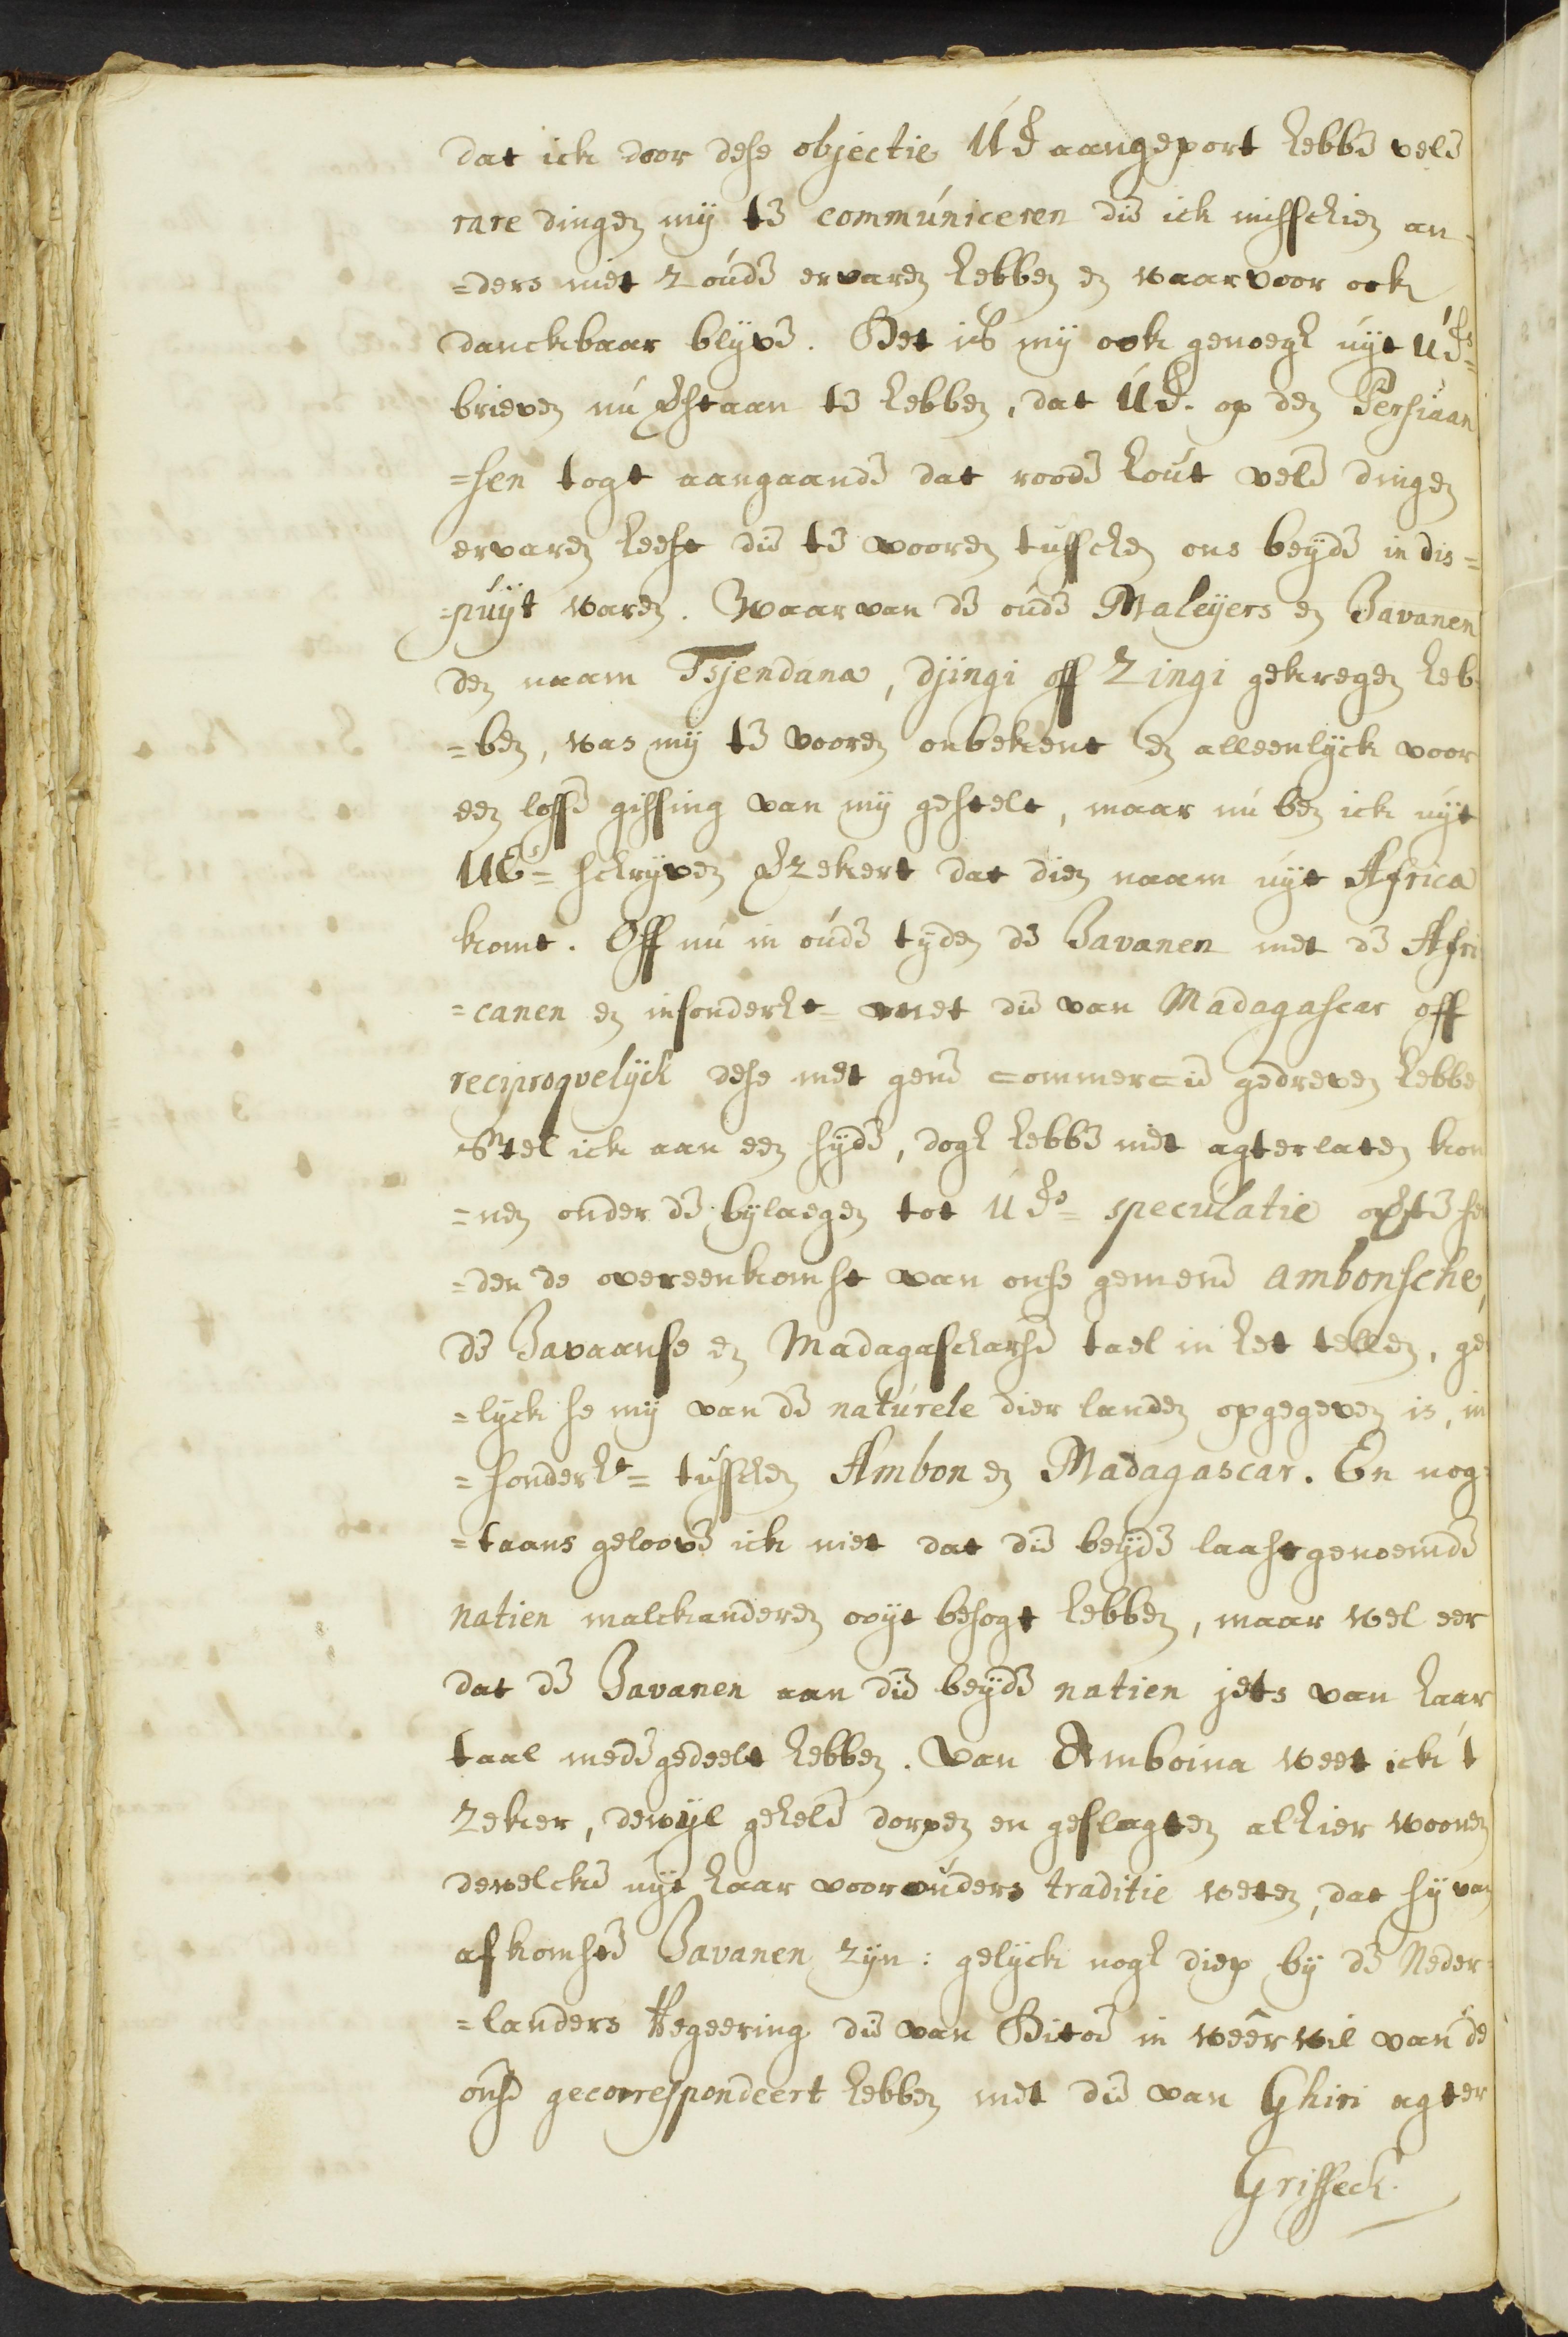 dat ick door dese objectie UE aangeport hebbe vele
rare dingen mij te communiceren die ick misschien an=
=ders niet zoude ervaren hebben en waarvoor ook
danckbaar blyve. Het is mij ook genoegh uyt UEs=
brieven nu verstaan te hebben, dat UE. op den Persiaan
=sen togt aangaande dat roode hout vele dingen
ervaren heeft die te vooren tusschen ons beyde in dis=
=puyt waren. Waar van de oude Maleyers en Javanen
den naam Tsjendana, djingi off Zingi gekregen heb
=ben, was mij te vooren onbekent en alleenlyck voor
een losse gissing van mij gestelt, maar nu ben ick uyt
UEs= schryven verzekert dat dien naam uyt Africa
komt. Off nu in oude tyden de Javanen met de Afri
=canen en insonderht= met die van Madagascar off
reciproquelyck dese met gene commercie gedreven hebbe
Stel ick aan een syde, dogh hebbe niet agterlaten kon
=nen onder de bylaegen tot UEs= speculatie opte se
=den de overeenkomst van onse gemene ambonsche,
de Javaanse en Madagascharse tael in het tellen, ge
=lyck se mij van de naturele dier landen opgegeven is, in
=sonderht= tusschen Ambon en Madagascar. En nog=
=taans geloove ick niet dat die beyde laastgenoemde
natien malckanderen ooyt besogt hebben, maar wel eer
dat de Javanen aan die beyde natien jets van haar
taal medegedeelt hebben. Van Amboina weet ick 't
zeker, dewyl gehele dorpen en geslagten alhier woonen
dewelcke uyt haar voorouders traditie weten, dat sy van
afkomste Javanen zyn: gelyck nogh diep by de Neder=
=landers Regeering die van Hitoe in weêrwil van de
onse gecorrespondeert hebben met die van Ghiri agter
Grisseck.